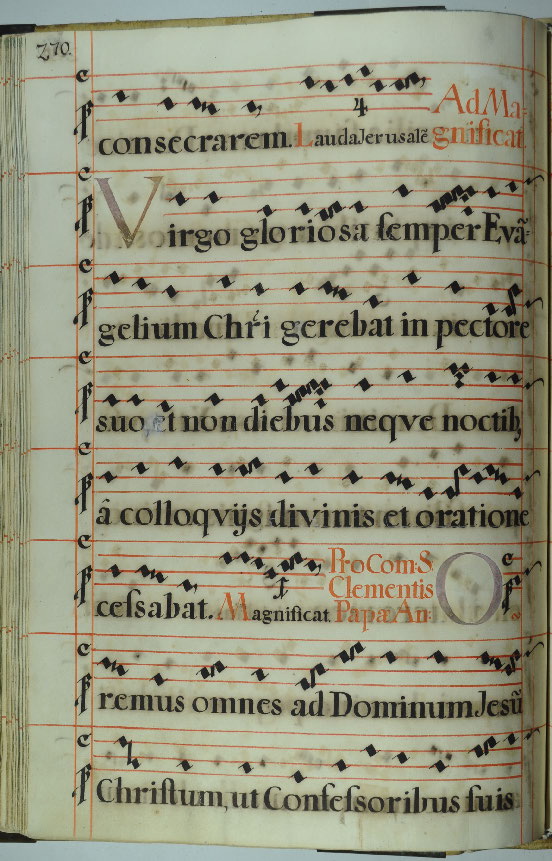 270.
consecrarem. Lauda Jerusalē Ad Ma-
4 gnificat
Virgo gloriosa semper Evã-
gelium Chr̃i gerebat in pectore
suo, et non diebus neqve noctibꝫ
â colloqvijs divinis et oratione
cessabat. Magnificat. Pro Com: S.
1 Clementis
Papæ An: O
remus omnes ad Dominum Jesũ
Christum, ut Confessoribus suis